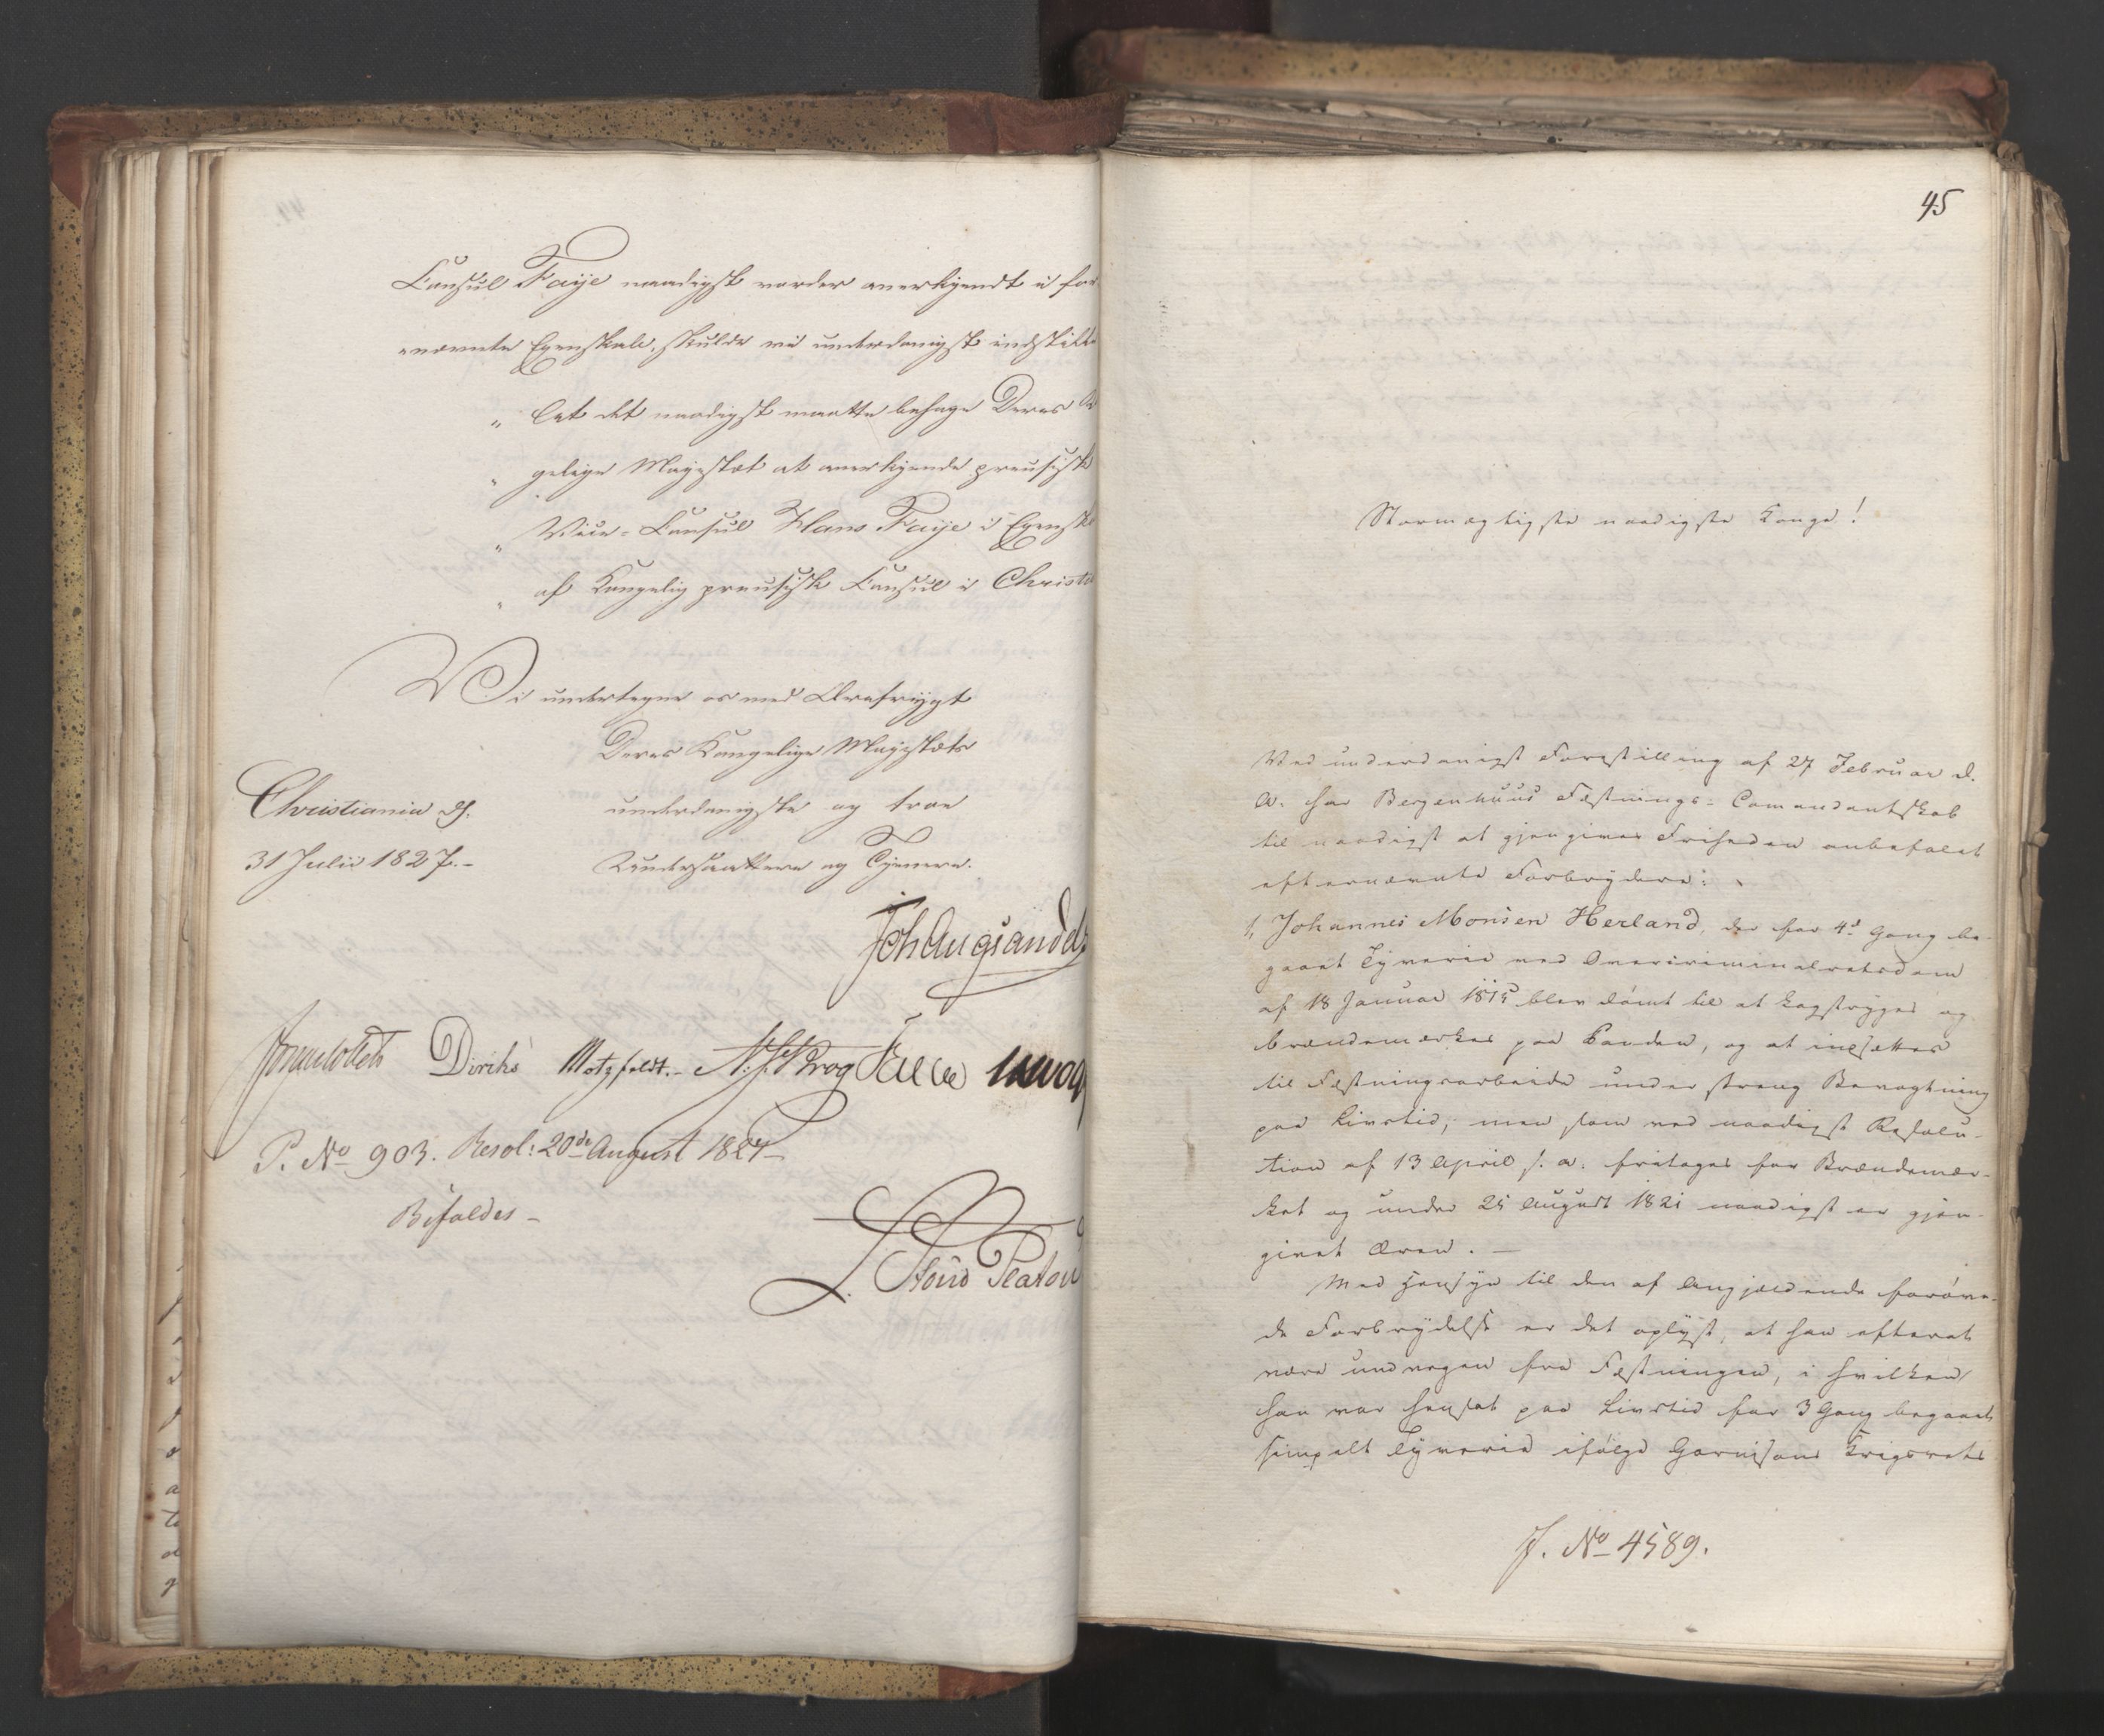 Consul Faye naadigst vorder anerkjendt i for
nævnte Egenskab, skulde vi underdanigst indstille
„ At det naadigst maatte behage Deres
„ gelige Majestæt at anerkjende preusisk
„ Vice-Consul Hans Faye i Egensk
„ af Kongelig preusisk Consul i Christi
Vi undertegne os med Ærefrygt
Deres Kongelige Majestæts
Christiania d.
underdanigste og troe
31 Julii 1827.-
Undersaattere og Tjenere.
Joh Aug Sande
Diriks Motzfeldt.- N. J. Krog
P. No 903. Resol: 20de August 1827
Bifaldes -
L. Stoud Platou
45
Stormægtigste naadigste Konge!
Ved underdanigst Forestilling af 27 Februar d.
A. har Bergenhuus Fæstnings-Comandantskab
til naadigst at gjengives Friheden anbefalet
efternævnte Forbrydere:
1, Johannes Monsen Herland, der for 4de Gang be-
gaaet Tyverie ved Overcriminalretsdom
af 18 Januar 1815 blev dømt til at kagstryges og
brændemærkes paa Panden, og at indsættes
til Fæstningsarbeide under streng Bevogtning
paa Livstid; men som ved naadigst Resolu-
tion af 13 April s. A. fritages for Brændemær-
ket og under 25 August 1821 naadigst er gjen-
givet Æren. -
Med Hensyn til den af Angjældende forøve-
de Forbrydelse er det oplyst, at han efter at
være undvegen fra Fæstningen, i hvilken
han var hensat paa Livstid for 3 Gang begaaet
simpelt Tyverie ifølge Garnisons Krigsrets
J. No 4589.